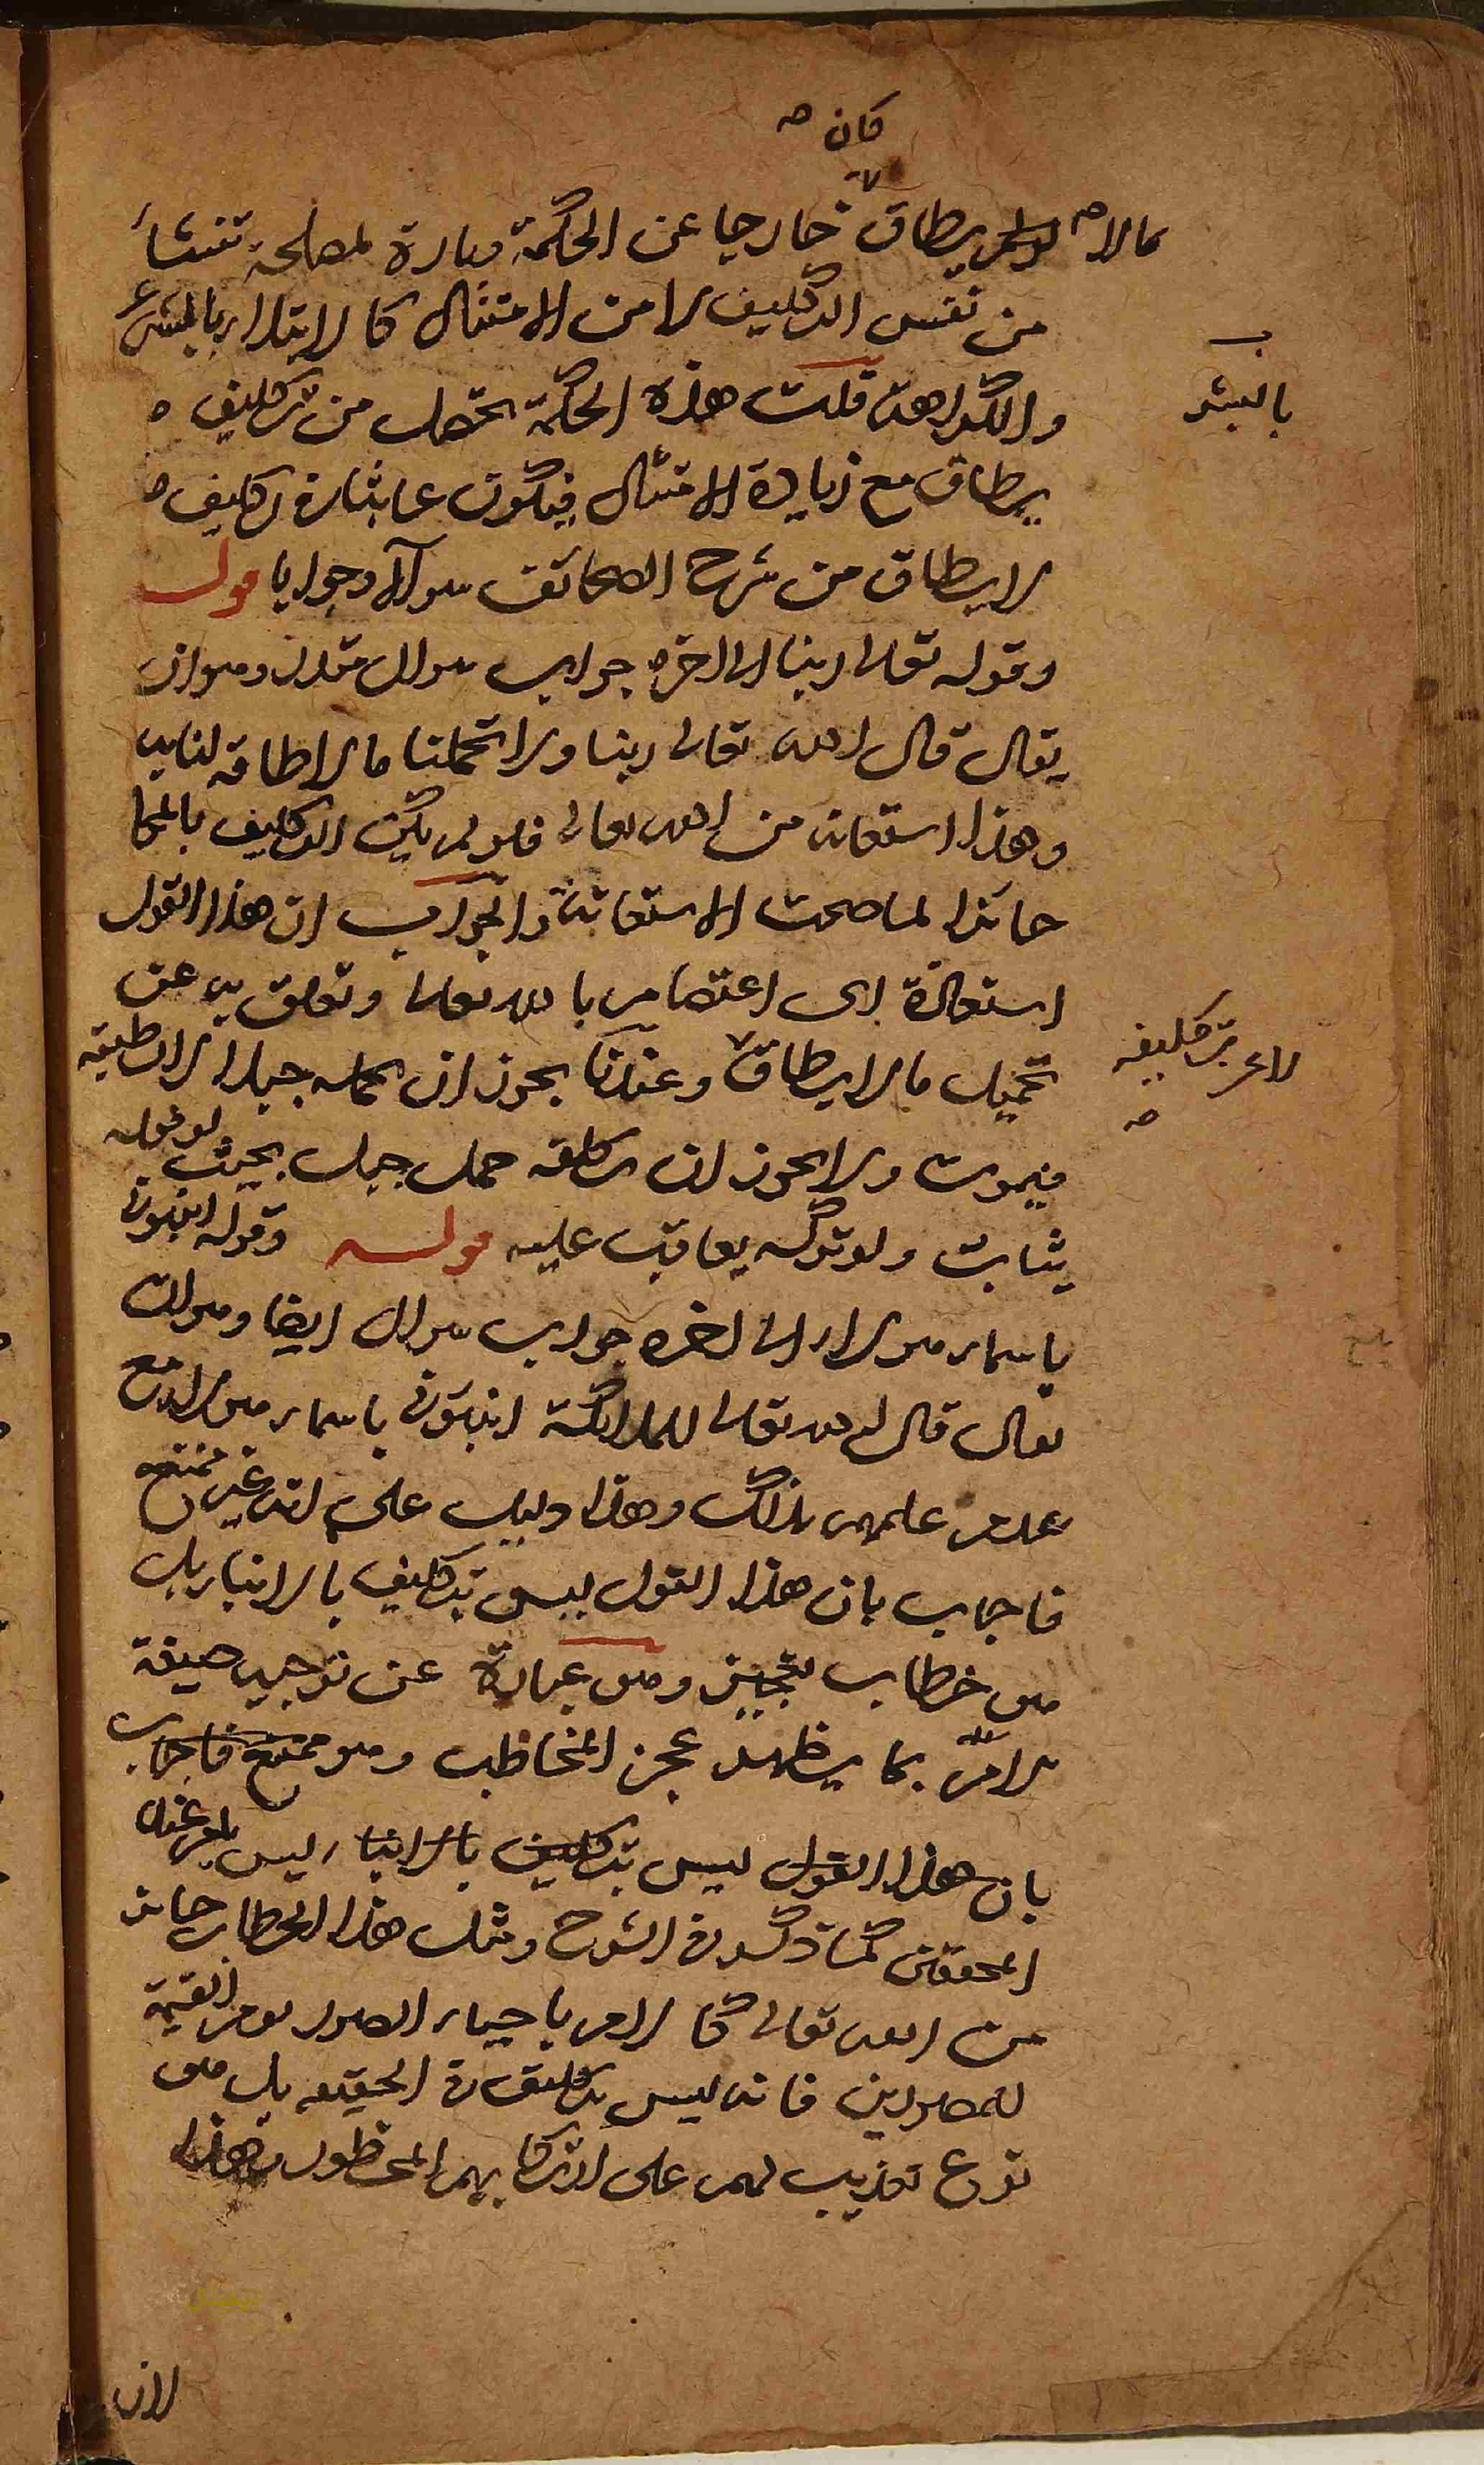 كان صح
مالا يطاق خارجا عن الحكمة وتارة لمصلحة تنشأ
من نفس التكليف لا من الامتثال كالابتلاء بالبشر
بالبشر
والكراهة قلت هذه الحكمة تحصل من تكليف
يطاق مع زيادة الامتثال فيكون عابثا في تكليف
لا يطاق من شرح الصحائف سوآلا وجوابا قوله
وقوله تعالى ربنا الى اخره جواب سوال مقدر وهو ان
يقال قال الله تعالى ربنا ولا تحملنا ما لا طاقة لنا به
وهذا استعاذة من الله تعالى فلو لم يكن التكليف بالمحا
جائزا لما صحت الاستعاذة والجواب ان هذا القول
استعاذة اى اعتصام بالله تعالى وتعلق به عن
تحميل ما لا يطاق وعندنا يجوز ان يحمله جبلا لا يطيقه
لا عن تكليفه
صح
فيموت ولا يجوز ان يكلفه حمل جبل بحيث لو فعله
يثاب ولو تركه يعاقب عليه قوله وقوله انبئونى
باسماء هولاء الى اخره جواب سوال ايضا وهو ان
يقال قال الله تعالى للملائكة انبئونى باسماء هولاء مع
عدم علمهم بذلك وهذا دليل على انه غير ممتنع
فاجاب بان هذا القول ليس بتكليف بالانباء بل
هو خطاب تعجيز وهو عبارة عن توجيه صيغة
الامر بما يظهر عجز المخاطب وهو ممتنع فاجاب
بان هذا القول ليس بتكليف بالانباء ليس بامر عند
المحققين كما ذكر فى الشرح ومثل هذا الخطاب جائز
من الله تعالى كالامر باحياء الصور يوم القيمة
للمصورين فانه ليس بتكليف فى الحقيقه بل هو
نوع تعذيب لهم على ارتكابهم المحظور وهذا
لان